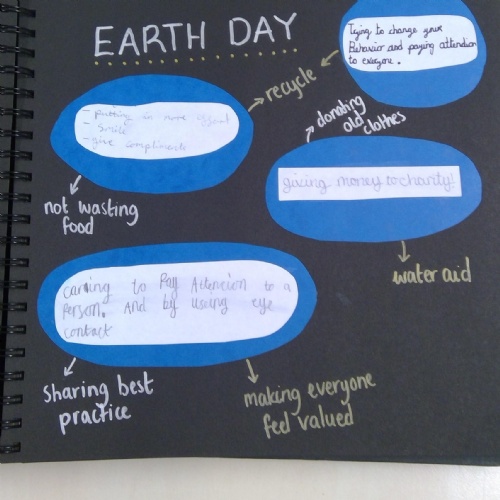 EARTH DAY
Trying to change your
Behavior and paying attention
to everyone.
recycle
- putting in more effort
- Smile
- give compliments
donating
old
clothes
giving money to charity!
not wasting
food
water aid
carning to Pay Attencion to a
Person. And by useing eye
contact
sharing best
practice
making everyone
feel valued